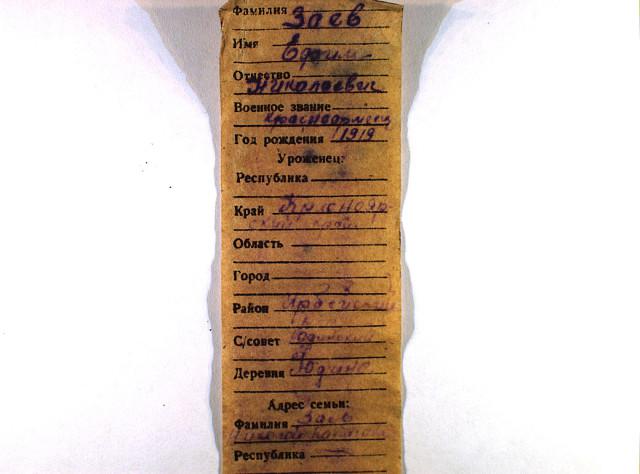 Фамилия Заев
Имя Ефим
Отчество
Николаевич
Военное звание
красноармеец
Год рождения 1919
Уроженец:
Республика
Край Краснояр-
ский край
Область
Город
Район Ирбейский
С/совет Юдинский
Деревня Юдино
Адрес семьи:
Фамилия Заев
Республика